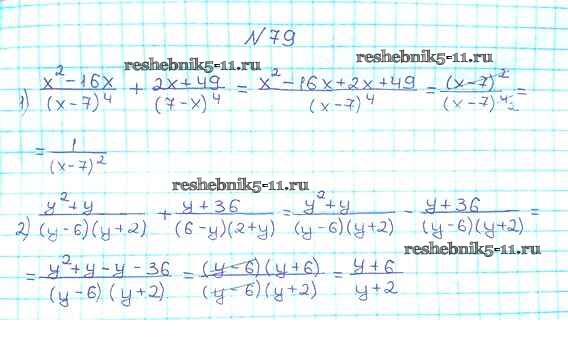 №79
reshebnik5-11.ru reshebnik5-11.ru
1) (x² - 16x)/(x-7)⁴ + (2x+49)/(7-x)⁴ = (x² - 16x + 2x + 49)/(x-7)⁴ = (x-7)²/(x-7)⁴ =
= 1/(x-7)²
reshebnik5-11.ru
2) (y²+y)/((y-6)(y+2)) + (y+36)/((6-y)(2+y)) = (y²+y)/((y-6)(y+2)) - (y+36)/((y-6)(y+2)) =
reshebnik5-11.ru
= (y²+y-y-36)/((y-6)(y+2)) = ((y-6)(y+6))/((y-6)(y+2)) = (y+6)/(y+2)